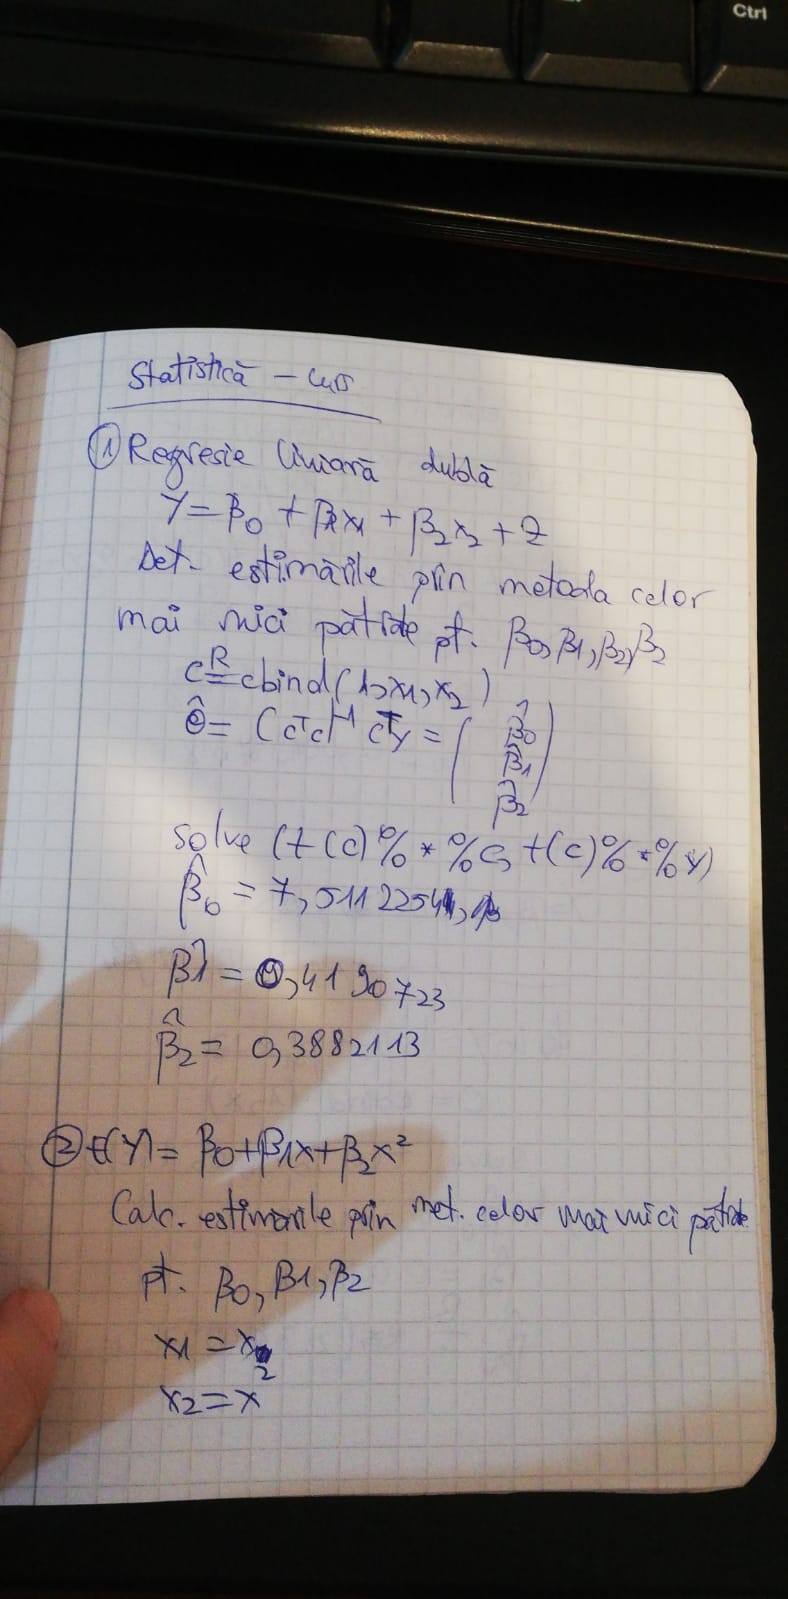 Ctrl
Statistică - curs
① Regresie liniară dublă
Y = β0 + β1x1 + β2x2 + Z
Det. estimările prin metoda celor
mai mici pătrate pt. β0, β1, β2, β2
C R= cbind(1, x1, x2)
Θ̂ = (CᵀC)⁻¹ CᵀY = ( β̂0
β̂1
β̂2 )
solve (t(c)%*%c, t(c)%*%Y)
β̂0 = 7,51122541
β̂1 = 0,4190723
β̂2 = 0,3882113
② E(Y) = β0 + β1x + β2x²
Calc. estimările prin met. celor mai mici pătrate
pt. β0, β1, β2
x1 = x
x2 = x²